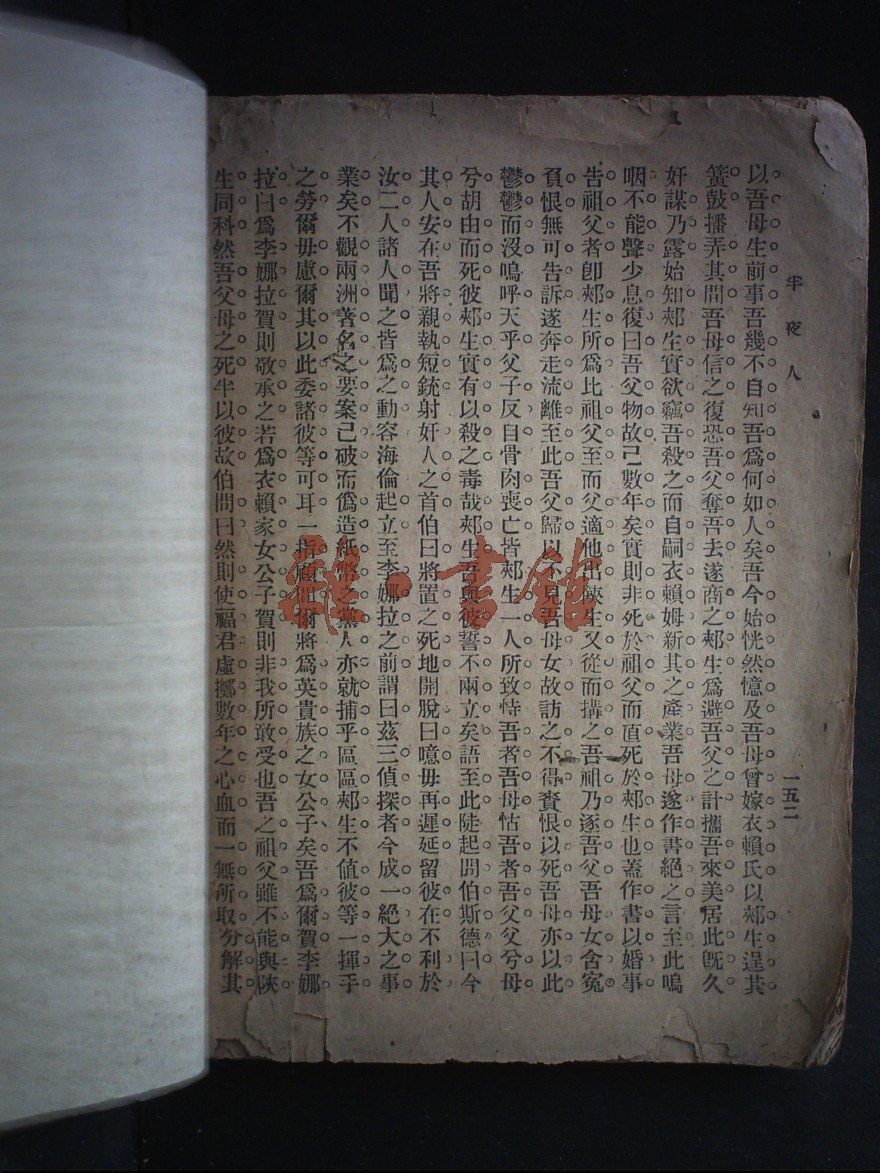 半夜人
一五二
以吾母生前事吾幾不自知吾爲何如人矣吾今始恍然憶及吾母曾嫁衣賴氏以郟生逞其
簧鼓播弄其間吾母信之復恐吾父奪吾去遂商之郟生爲避吾父之計攜吾來美居此旣久
奸謀乃露始知郟生實欲竊吾殺之而自嗣衣賴姆新其之產業吾母遂作書絕之言至此嗚
咽不能聲少息復曰吾父物故已數年矣實則非死於祖父而直死於郟生也蓋作書以婚事
告祖父者卽郟生所爲比祖父至而父適他出郟生又從而搆之吾祖乃逐吾父吾母女含冤
負恨無可告訴遂奔走流離至此吾父歸以不見吾母女故訪之不得賫恨以死吾母亦以此
鬱鬱而沒嗚呼天乎父子反目骨肉喪亡皆郟生一人所致恃吾者吾母怙吾者吾父父兮母
兮胡由而死彼郟生實有以殺之毒哉郟生吾與彼誓不兩立矣語至此陡起問伯斯德曰今
其人安在吾將親執短銃射奸人之首伯曰將置之死地開脫曰噫毋再遲延留彼在不利於
汝二人諸人聞之皆爲之動容海倫起立至李娜拉之前謂曰茲三偵探者今成一絕大之事
業矣不觀兩洲著名之要案已破而僞造新幣之黨人亦就捕乎區區郟生不値彼等一揮手
之勞爾毋慮爾其以此委諸彼等可耳一指顧間爾將爲英貴族之女公子矣吾爲爾賀李娜
拉曰爲李娜拉賀則敬承之若爲衣賴家女公子賀則非我所敢受也吾之祖父雖不能與陜
生同科然吾父母之死半以彼故伯問曰然則使福君虛擲數年之心血而一無所取分解其